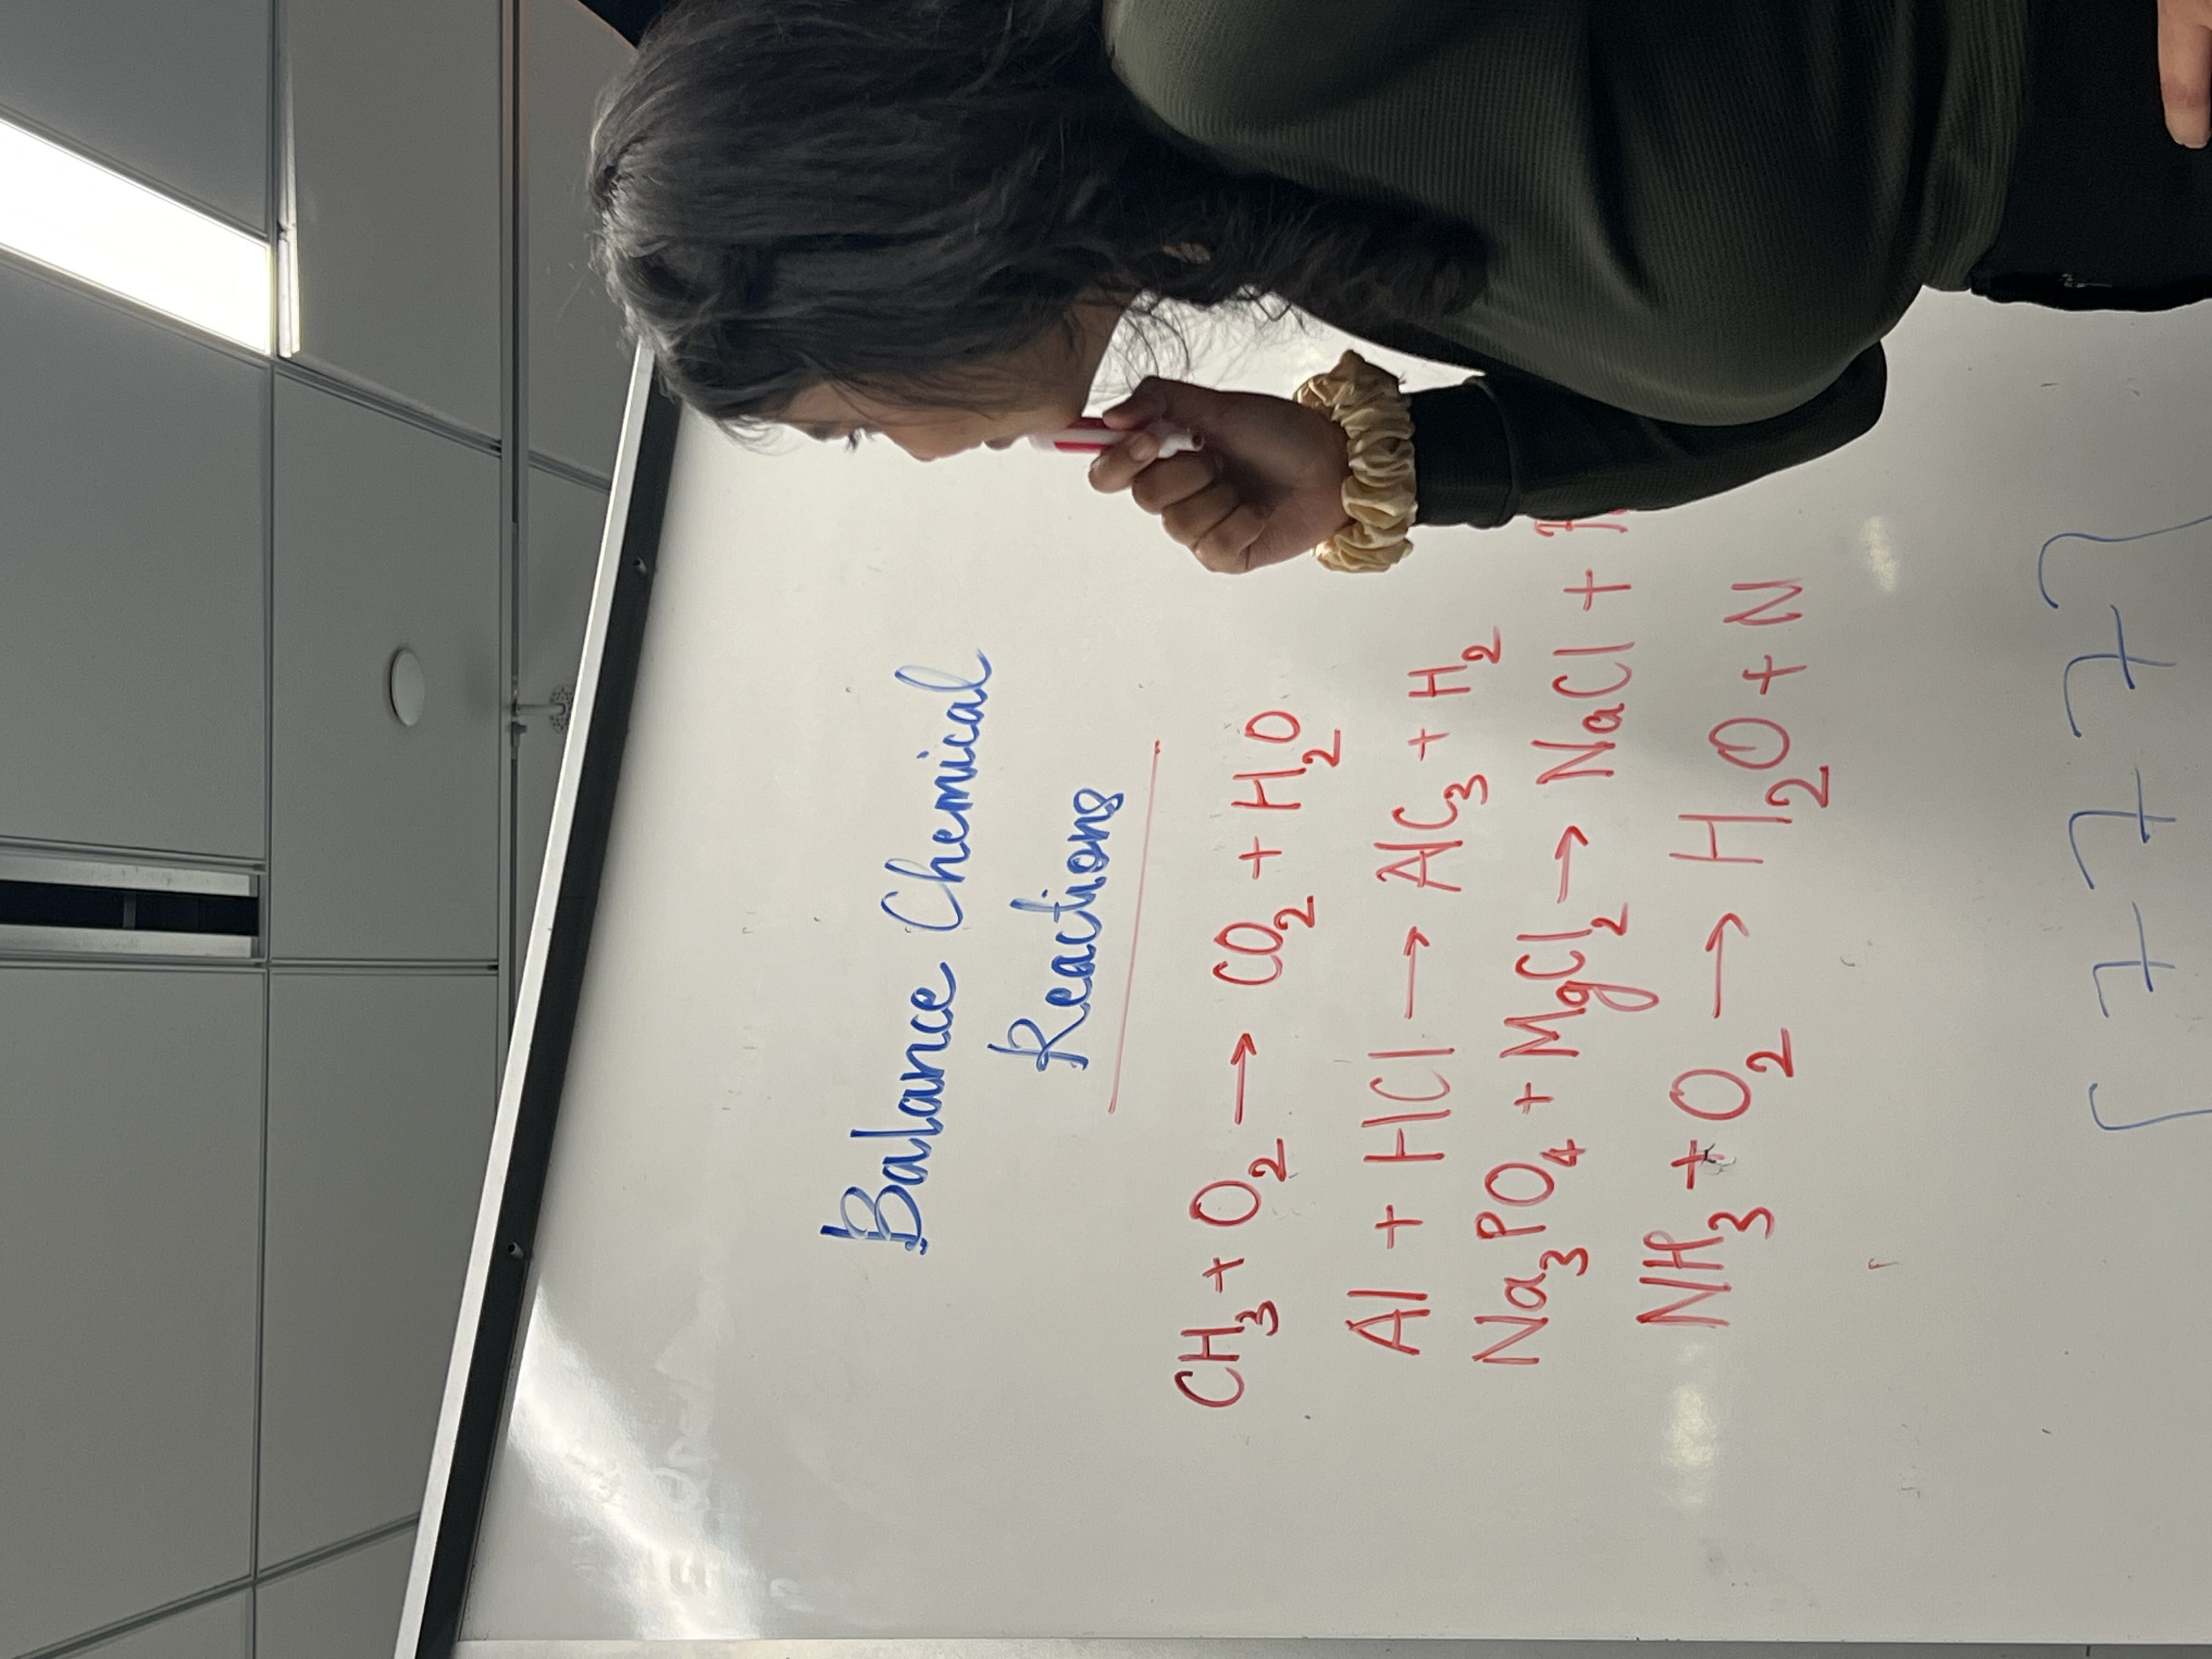 Balance Chemical
Reactions
CH₃ + O₂ → CO₂ + H₂O
Al + HCl → AlC₃ + H₂
Na₃PO₄ + MgCl₂ → NaCl +
NH₃ + O₂ → H₂O + N
[ 7 7 7 ]